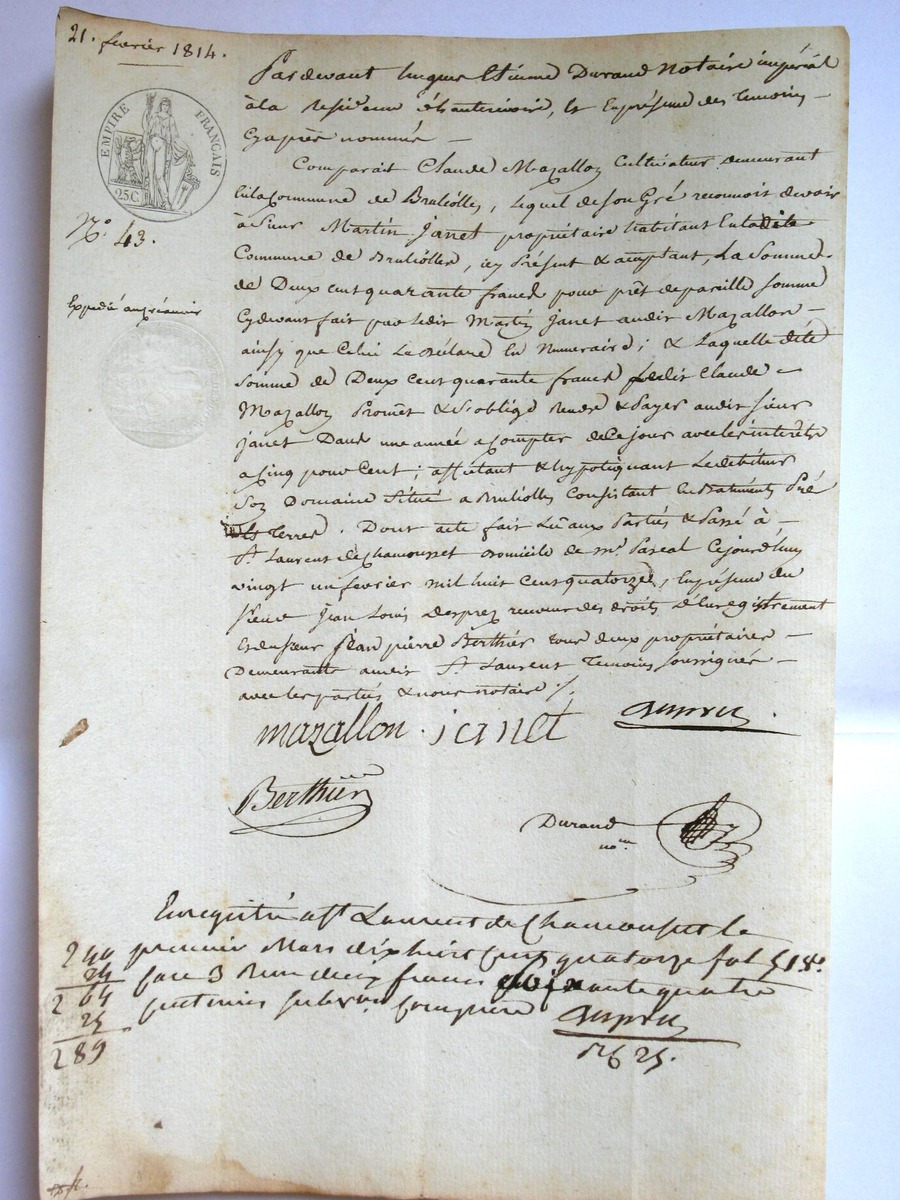 21. fevrier 1814.
EMPIRE FRANÇAIS
25C
N.° 43.
Expedié au créancier
Pardevant hugues Etienne Durand Notaire impérial
à la résidence d'hauterivoire, et En présence des Temoins
Cy après nommés —
Comparait Claude Mazallon Cultivateur demeurant
En la Commune de Brulliolles, lequel de son Gré reconnoit devoir
à Sieur Martin Janet propriétaire habitant En la dite
Commune de Brulliolles, icy Présent & acceptant, La Somme
de Deux cent quarante francs pour prêt de pareille somme
Cydevant fait par ledit Martin Janet audit Mazallon —
ainsy que Celui Le déclare En Numeraire; & Laquelle dite
Somme de Deux Cent quarante francs ledit Claude —
Mazallon Promet & S'oblige rendre & Payer audit sieur
Janet Dans une année a Compter de Ce jour avec les intérêts
a Cinq pour Cent; affectant & hypotéquant Le débiteur
Son Domaine Situé a Brulliolles Consistant En Batiments Pré
et Terres. Dont acte fait Lû aux Parties & Passé à —
S.t Laurent de Chamousset domicile de m.r Pascal Cejourd'huy
vingt un fevrier mil huit Cent quatorze, En présence du
Sieur Jean Louis Desprez receveur des droits d'Enregistrement
Et du Sieur Jean pierre Berthier tous deux propriétaires —
Demeurants audit S.t Laurent Temoins Soussignés —
avec les parties & nous notaire ./.
mazallon. janet Desprez
Berthier
Durand
no.re
Enregistré a S.t Laurent de Chamousset le
premier Mars dix huit Cent quatorze fol 518.°
Case 3 Reçu deux francs soixante quatre
centimes subv.on Comprise Desprez
240
24
264
25
289
2f 6 25.